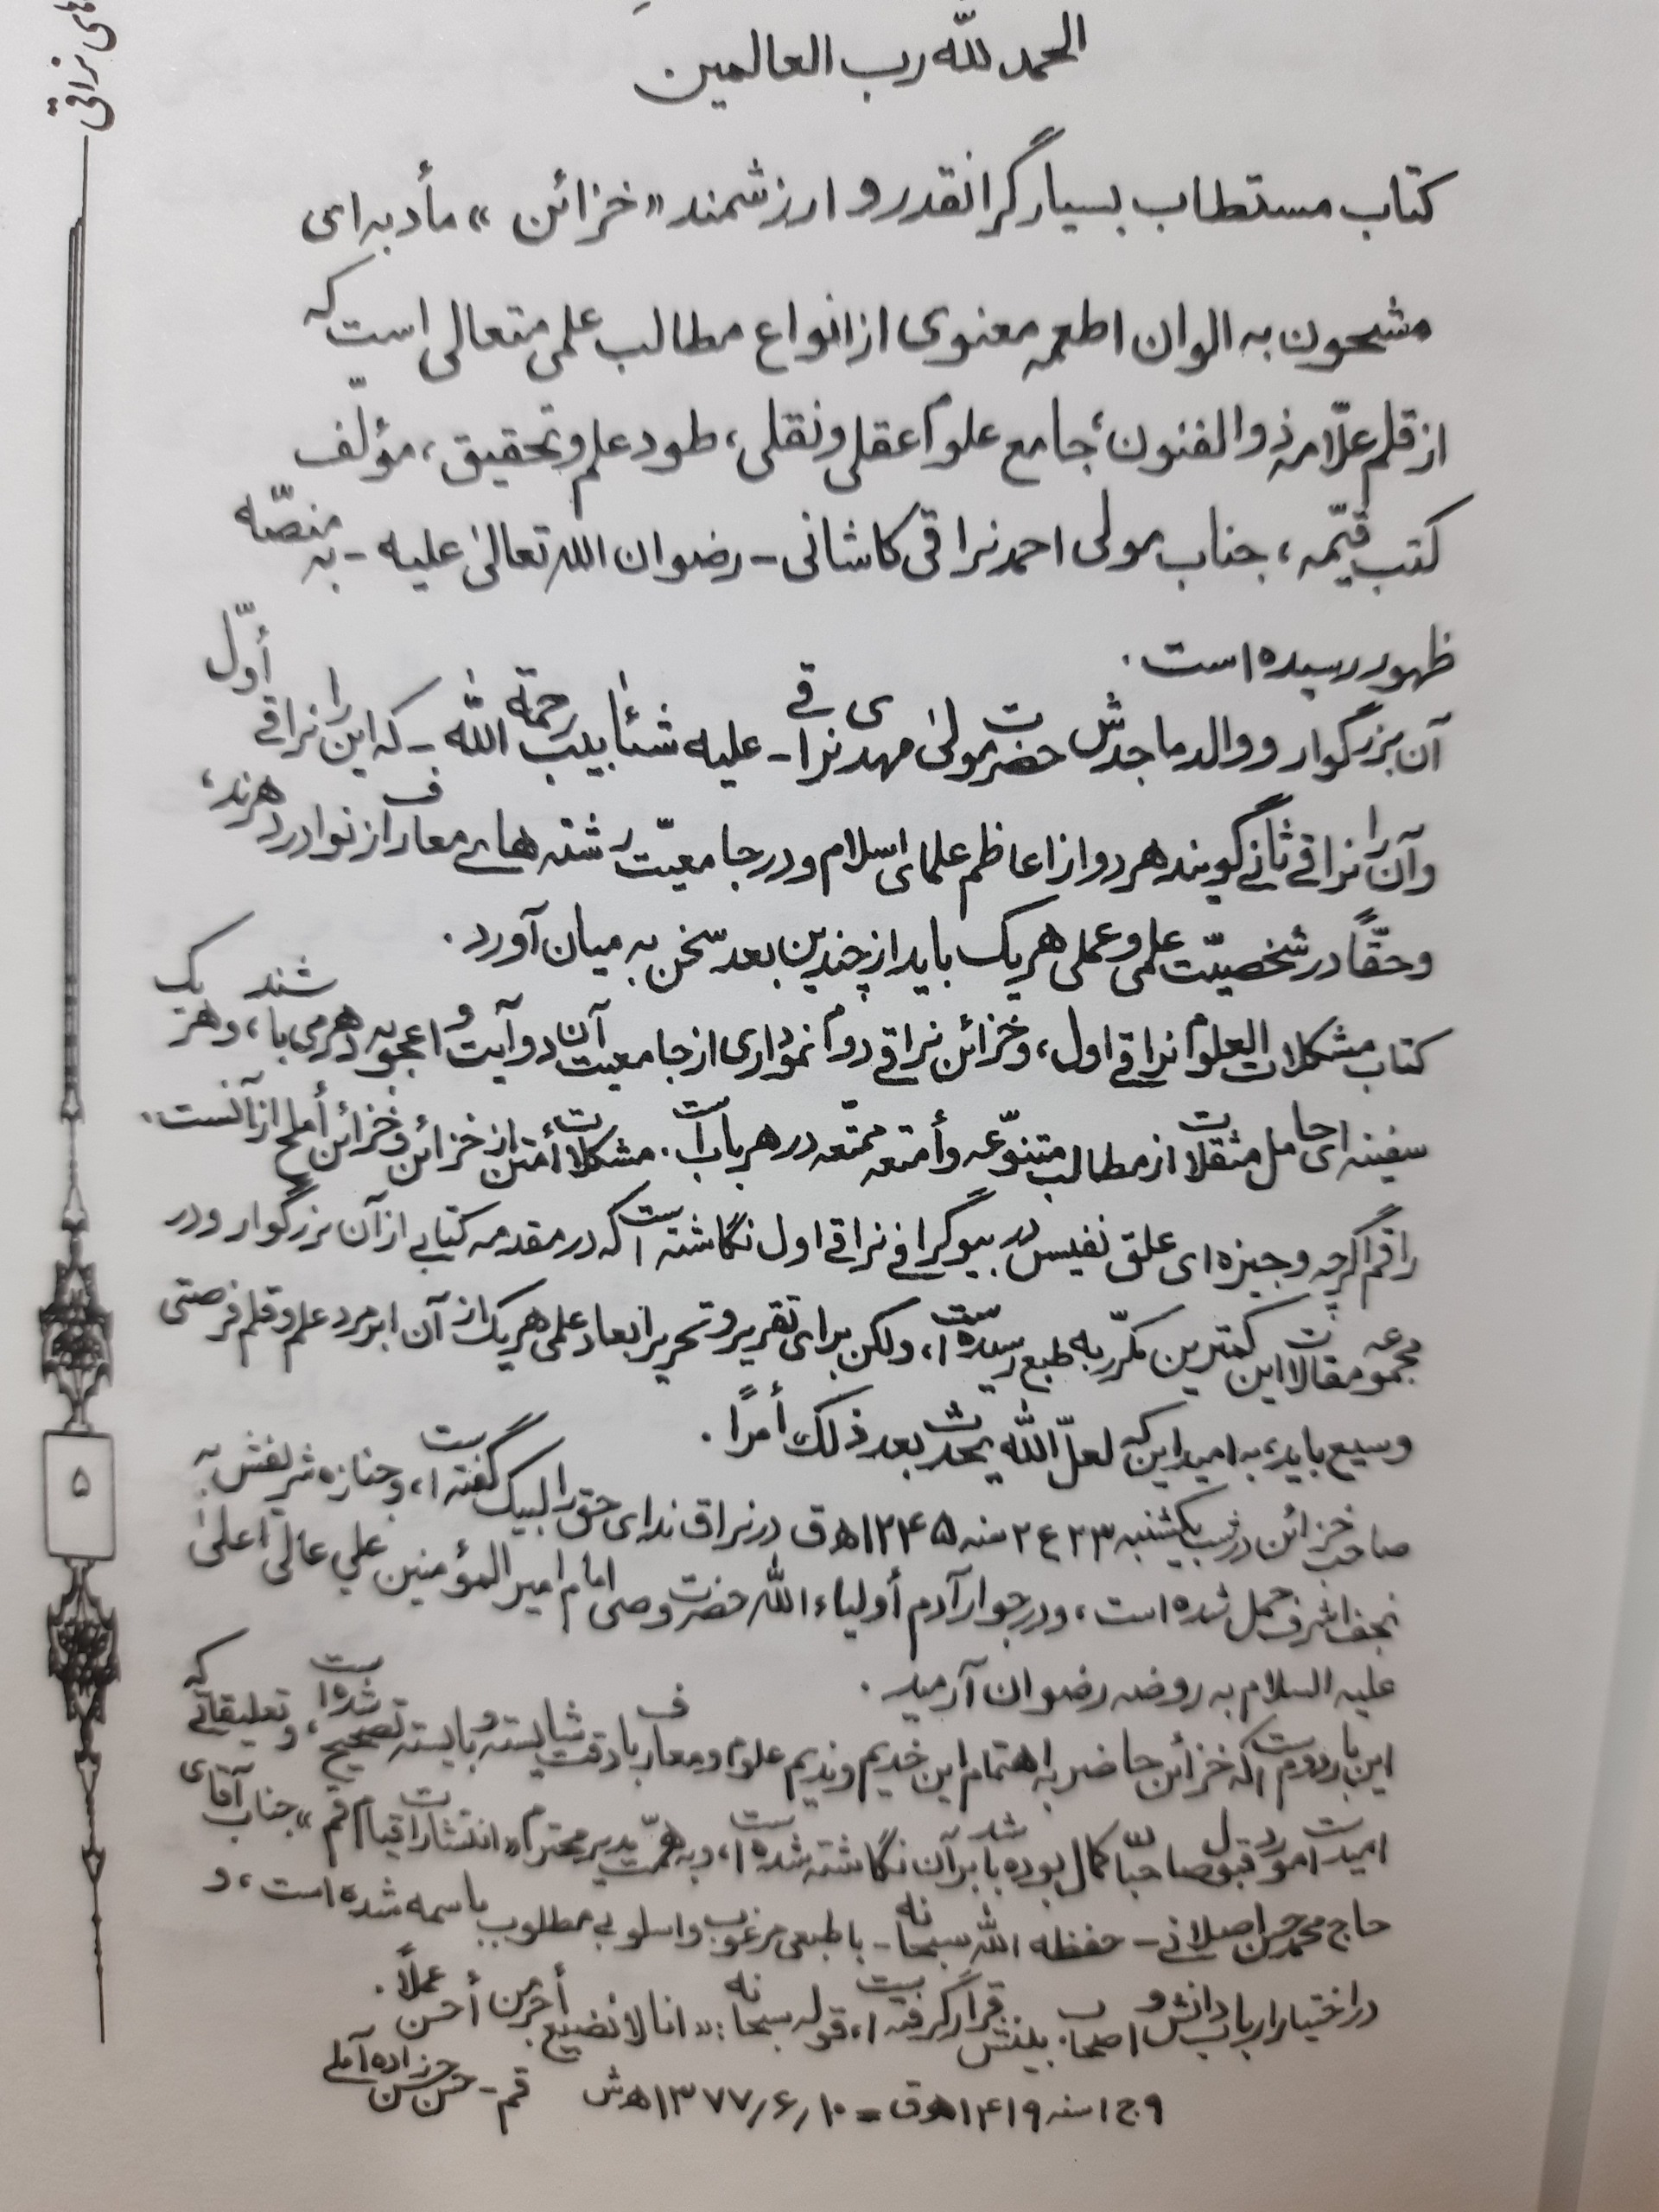 الحمد لله رب العالمین
کتاب مستطاب بسیار گرانقدر و ارزشمند «خزائن» مأدبه‌ای
مشحون به الوان اطعمه معنوی از انواع مطالب علمی متعالی است که
از قلم علّامه ذوالفنون، جامع علوم عقلی و نقلی، طود علم و تحقیق، مؤلّف
کتب قیّمه، جناب مولی احمد نراقی کاشانی - رضوان الله تعالیٰ علیه - به منصّه
ظهور رسیده است.
آن بزرگوار و والد ماجدش حضرت مولیٰ مهدی نراقی - علیه شئابیب رحمة الله - که این را نراقی أوّل
و آن را نراقی ثانی گویند هر دو از اعاظم علمای اسلام و در جامعیّت رشته‌های معارف از نوادر دهرند،
و حقّاً در شخصیّت علمی و عملی هر یک باید از چندین بعد سخن به میان آورد.
کتاب مشکلات العلوم نراقی اول، و خزائن نراقی دوم نموداری از جامعیت آن دو آیت و اعجوبه دهر می باشند، و هر یک
سفینه‌ای حامل مثقلات از مطالب متنوّعه و أمتعه ممتّعه در هر باب است. مشکلات أمتن از خزائن و خزائن أملح از آنست.
راقم اگرچه وجیزه‌ای علق نفیس در بیوگرافی نراقی اول نگاشته است که در مقدمه کتابی از آن بزرگوار و در
مجموعه مقالات این کمترین مکرّر به طبع رسیده است، ولکن برای تقریر و تحریر ابعاد علمی هر یک از آن ابر مرد علم و قلم فرصتی
وسیع باید، به امید این که لعلّ الله یحدث بعد ذلک أمراً.
صاحب خزائن در شب یکشنبه ۲۳ ع ۲ سنه ۱۲۴۵ ه‍ ق در نراق ندای حق را لبیک گفته است، و جنازه شریفش به
نجف اشرف حمل شده است، و در جوار آدم أولیاء الله حضرت وصی امام امیر المؤمنین علی عالی اعلیٰ
علیه السلام به روضه رضوان آرمید.
این بار دوم است که خزائن حاضر به اهتمام این خدیم و ندیم علوم و معارف با دقت شایسته و بایسته تصحیح شده است، و تعلیقاتی که
امید است مورد قبول صاحبّان کمال بوده باشد بر آن نگاشته شده است، و به همّت مدیر محترم «انتشارات قیام قم» جناب آقای
حاج محمد حسن اصلانی - حفظه الله سبحانه - با طبعی مرغوب و اسلوبی مطلوب باسمه شده است، و
در اختیار ارباب دانش و اصحاب بینش قرار گرفته است، قوله سبحانه: «انا لا نضیع أجر من أحسن عملاً.
۹ ج ۱ سنه ۱۴۱۹ ه‍ ق = ۱۳۷۷/۶/۱۰ ه‍ ش قم - حسن حسن زاده آملی
۵